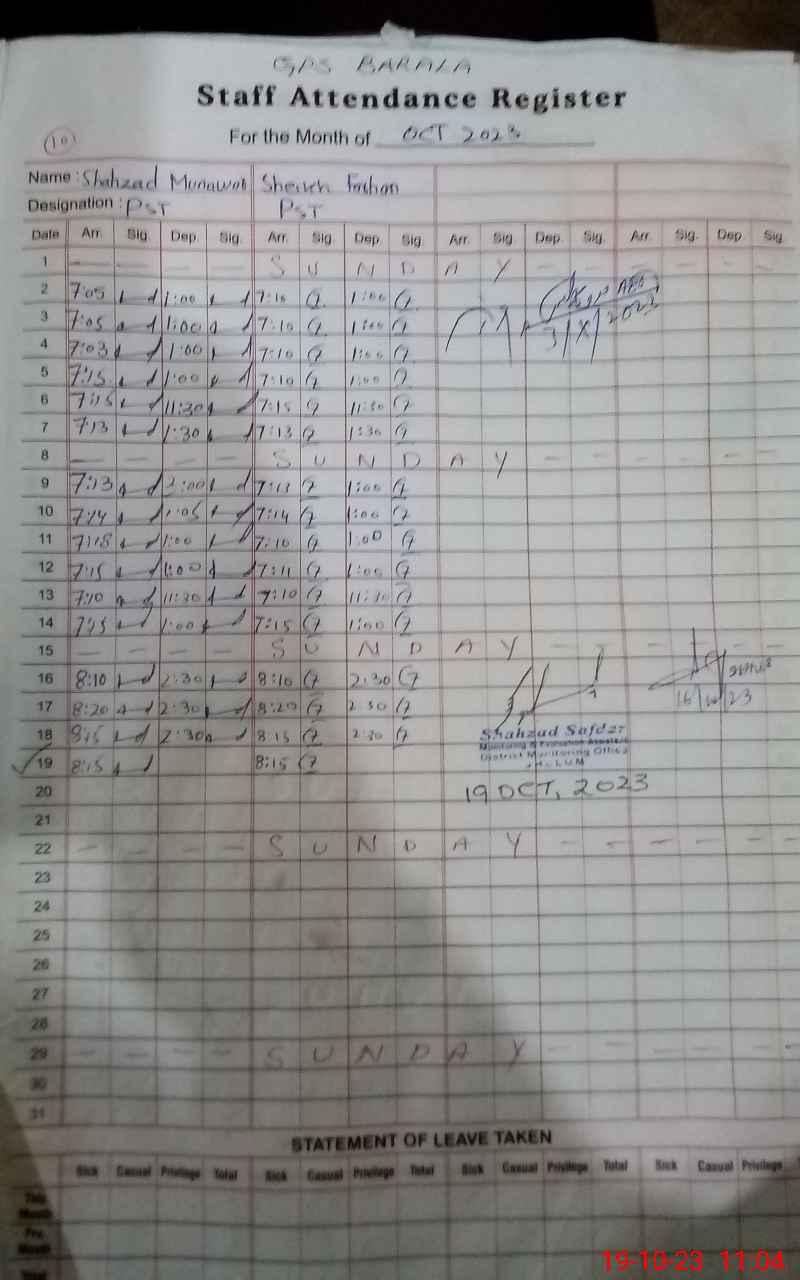 GPS BARALA
Staff Attendance Register
10
For the Month of OCT 2023
Name : Shahzad Munawar Sheikh Farhan
Designation : PST PST
Date Arr. Sig. Dep. Sig. Arr. Sig. Dep. Sig. Arr. Sig. Dep. Sig. Arr. Sig. Dep. Sig.
1 — — — — S U N D A Y — — — — — —
2 7:05 1:00 7:10 1:00
3 7:05 1:00 7:10 1:00
3/X/2023
4 7:03 1:00 7:10 1:00
5 7:15 1:00 7:10 1:00
6 7:15 11:30 7:15 11:30
7 7:13 1:30 7:13 1:30
8 — — — — S U N D A Y — — — — — —
9 7:13 7:13 1:00
10 7:14 1:05 7:14 1:00
11 7:18 1:00 7:10 1:00
12 7:15 1:00 7:11 1:00
13 7:10 11:30 7:10 11:30
14 7:15 1:00 7:15 1:00
15 — — — — S U N D A Y — — — — — —
16 8:10 2:30 8:10 2:30
16/10/23
17 8:20 2:30 8:20 2:30
18 8:15 2:30 8:15 2:30
Shahzad Safdar
Monitoring & Evaluation Assistant
District Monitoring Office
JHELUM
19 8:15 8:15
20
19 OCT, 2023
21
22 — — — — S U N D A Y — — — — — —
23
24
25
26
27
28
29 — — — — S U N D A Y — — — — — —
30
31
STATEMENT OF LEAVE TAKEN
Sick Casual Privilege Total Sick Casual Privilege Total Sick Casual Privilege Total Sick Casual Privilege
This Month
Pre. Month
Total
19-10-23 11:04